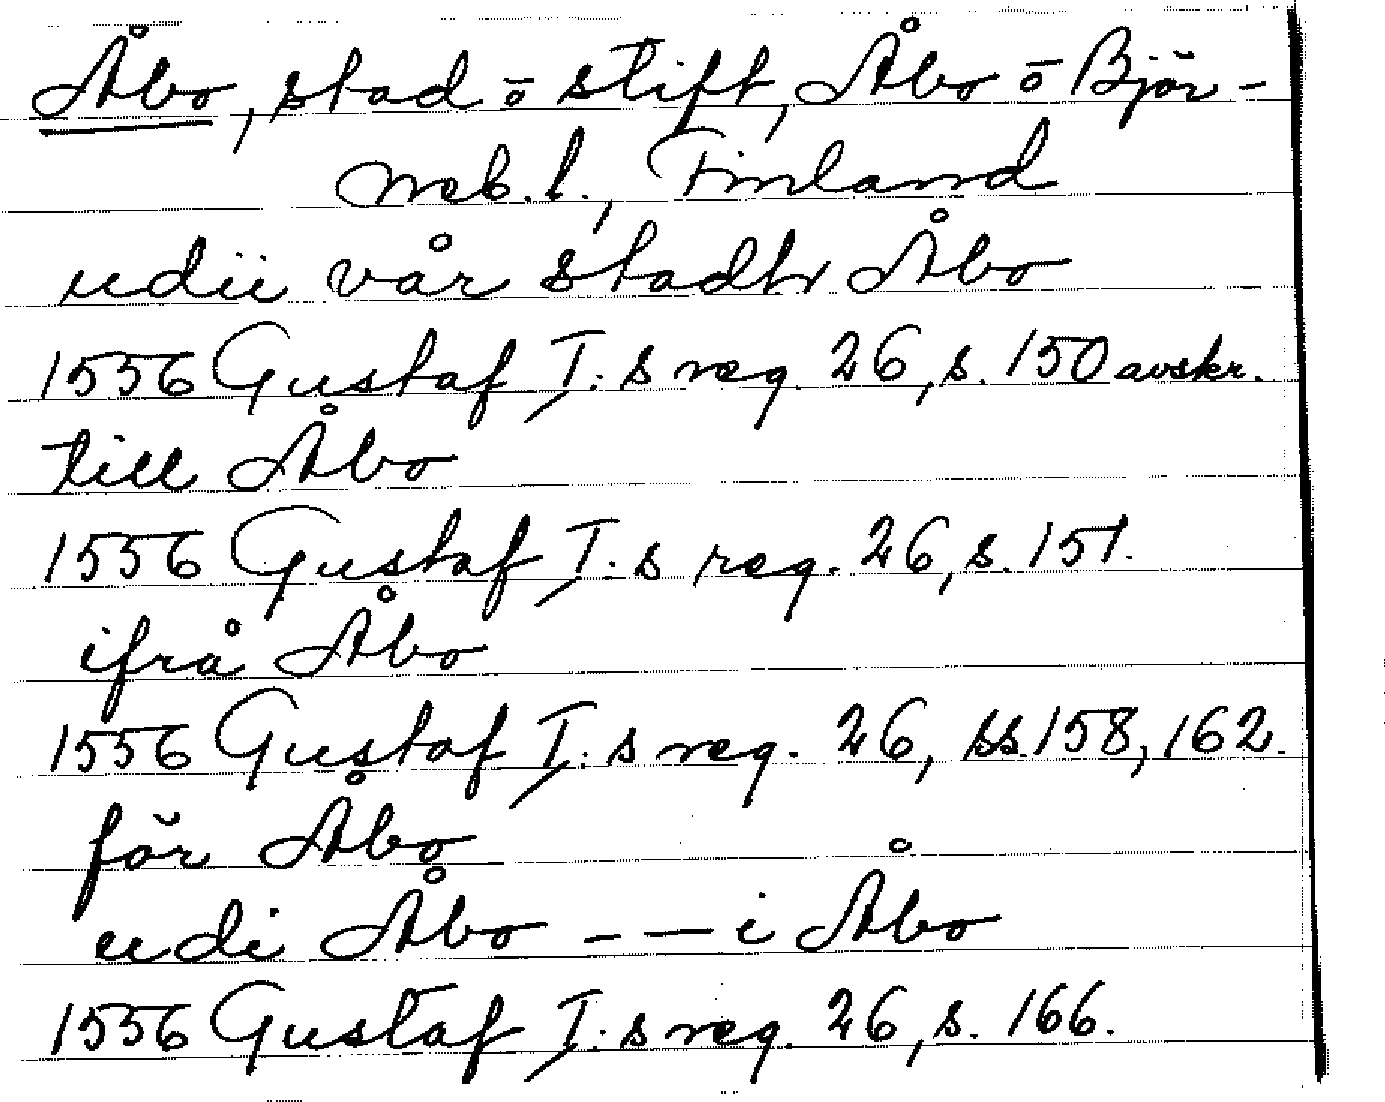 Åbo, stad o stift, Åbo o Björ-
neb. l., Finland
udii vår stadh Åbo
1556 Gustaf I:s reg. 26, s. 150 avskr.
till Åbo
1556 Gustaf I:s reg. 26, s. 151.
ifrå Åbo
1556 Gustaf I:s reg. 26, ss. 158, 162.
för Åbo
udi Åbo - — i Åbo
1556 Gustaf I:s reg. 26, s. 166.